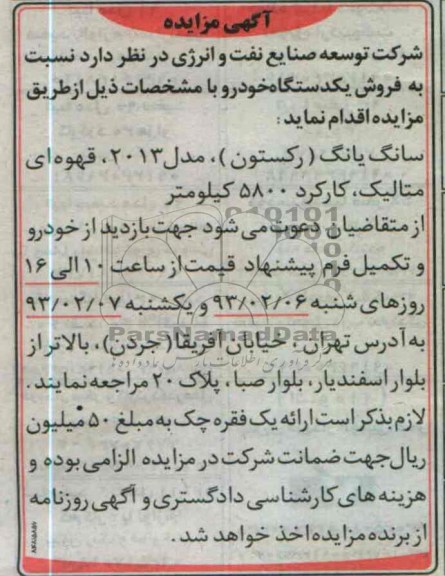 آگهی مزایده
شرکت توسعه صنایع نفت و انرژی در نظر دارد نسبت
به فروش یکدستگاه خودرو با مشخصات ذیل از طریق
مزایده اقدام نماید:
سانگ یانگ (رکستون)، مدل ۲۰۱۳، قهوه‌ای
متالیک، کارکرد ۵۸۰۰ کیلومتر
از متقاضیان دعوت می شود جهت بازدید از خودرو
و تکمیل فرم پیشنهاد قیمت از ساعت ۱۰ الی ۱۶
روزهای شنبه ۹۳/۰۲/۰۶ و یکشنبه ۹۳/۰۲/۰۷
ParsNamadData
به آدرس تهران - خیابان آفریقا (جردن)، بالاتر از
بلوار اسفندیار، بلوار صبا، پلاک ۲۰ مراجعه نمایند.
لازم بذکر است ارائه یک فقره چک به مبلغ ۵۰ میلیون
ریال جهت ضمانت شرکت در مزایده الزامی بوده و
هزینه های کارشناسی دادگستری و آگهی روزنامه
از برنده مزایده اخذ خواهد شد.